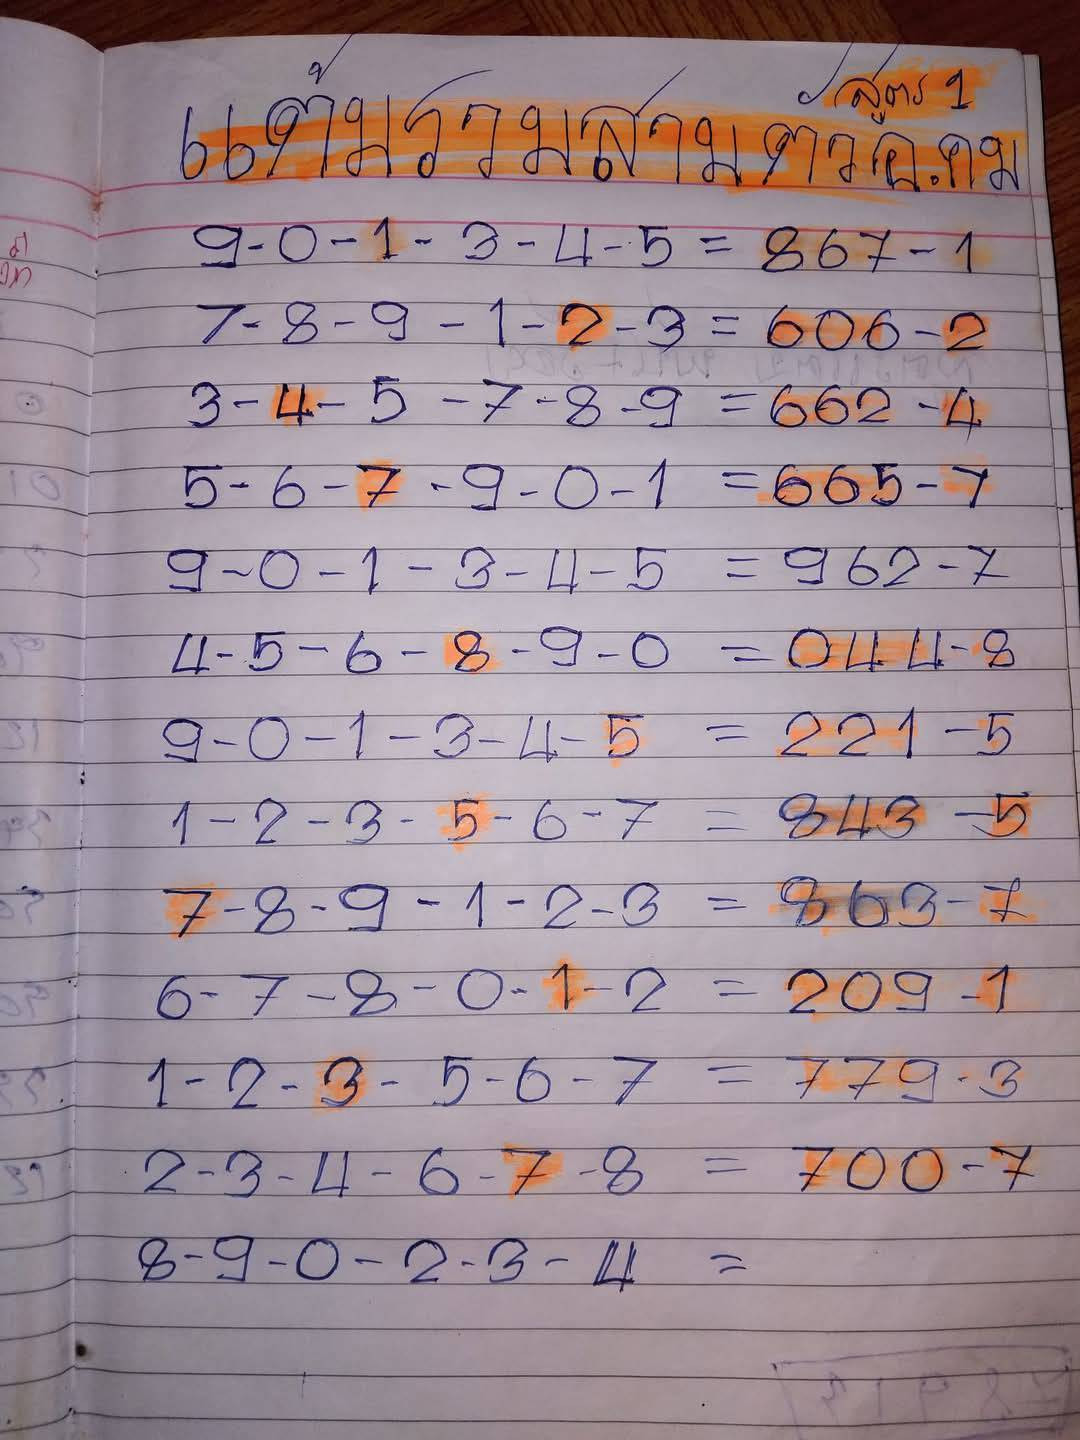 สูตร 1
แต้มรวมสามตัว อ.คม
9-0-1-3-4-5=867-1
7-8-9-1-2-3=606-2
3-4-5-7-8-9=662-4
5-6-7-9-0-1=665-7
9-0-1-3-4-5=962-7
4-5-6-8-9-0=044-8
9-0-1-3-4-5=221-5
1-2-3-5-6-7=843-5
7-8-9-1-2-3=863-7
6-7-8-0-1-2=209-1
1-2-3-5-6-7=779-3
2-3-4-6-7-8=700-7
8-9-0-2-3-4=